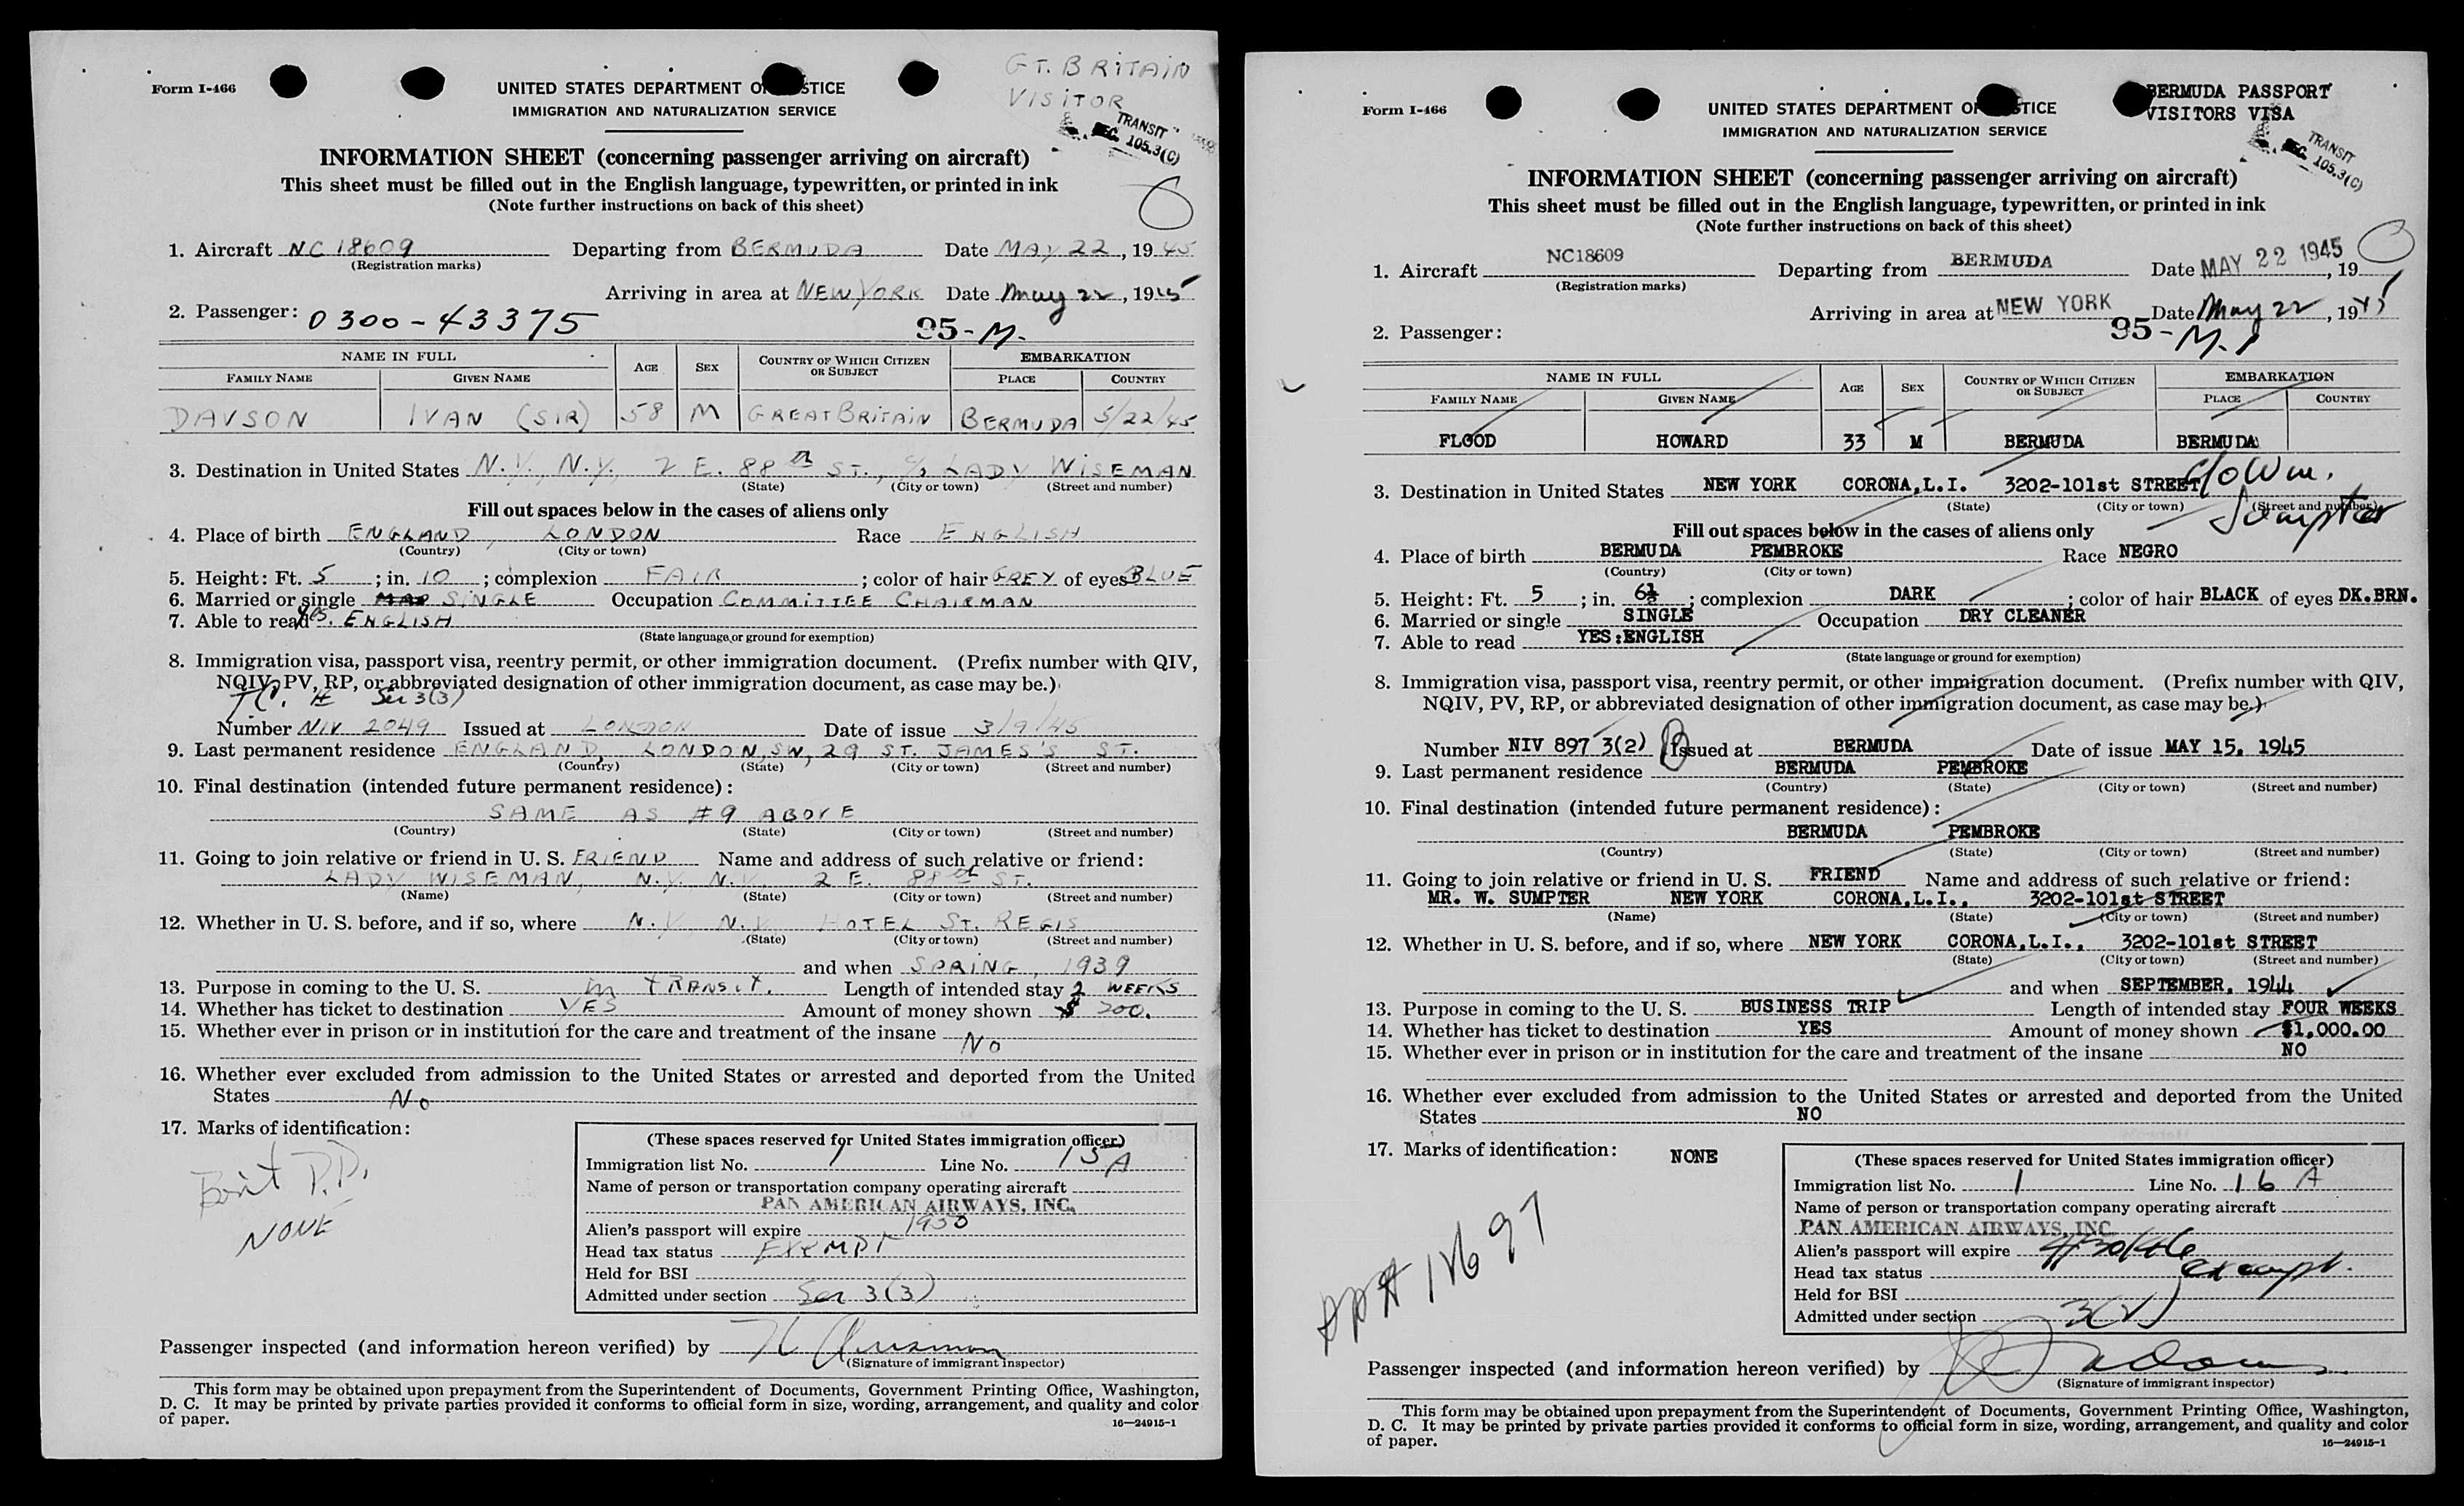 GT. BRITAIN
VISITOR
TRANSIT
SEC. 105.3(C)
Form I-466
UNITED STATES DEPARTMENT OF JUSTICE
IMMIGRATION AND NATURALIZATION SERVICE
INFORMATION SHEET (concerning passenger arriving on aircraft)
This sheet must be filled out in the English language, typewritten, or printed in ink
(Note further instructions on back of this sheet)
1. Aircraft NC 18609 Departing from BERMUDA Date MAY 22, 1945
(Registration marks)
Arriving in area at NEW YORK Date May 22, 1945
2. Passenger: 0300-43375 95-M.
NAME IN FULL AGE SEX COUNTRY OF WHICH CITIZEN OR SUBJECT EMBARKATION
FAMILY NAME GIVEN NAME PLACE COUNTRY
DAVSON IVAN (SIR) 58 M GREAT BRITAIN BERMUDA 5/22/45
3. Destination in United States N.Y., N.Y. 2 E. 88th ST., c/o LADY WISEMAN
(State) (City or town) (Street and number)
Fill out spaces below in the cases of aliens only
4. Place of birth ENGLAND, LONDON Race ENGLISH
(Country) (City or town)
5. Height: Ft. 5; in. 10; complexion FAIR; color of hair GREY of eyes BLUE
6. Married or single SINGLE Occupation COMMITTEE CHAIRMAN
7. Able to read yes. ENGLISH
(State language or ground for exemption)
8. Immigration visa, passport visa, reentry permit, or other immigration document. (Prefix number with QIV,
NQIV, PV, RP, or abbreviated designation of other immigration document, as case may be.)
Sec 3(3)
Number NIV 2049 Issued at LONDON Date of issue 3/9/45
9. Last permanent residence ENGLAND, LONDON, SW, 29 ST. JAMES'S ST.
(Country) (State) (City or town) (Street and number)
10. Final destination (intended future permanent residence):
SAME AS #9 ABOVE
(Country) (State) (City or town) (Street and number)
11. Going to join relative or friend in U. S. FRIEND Name and address of such relative or friend:
LADY WISEMAN, N.Y. N.Y. 2 E. 88th ST.
(Name) (State) (City or town) (Street and number)
12. Whether in U. S. before, and if so, where N.Y. N.Y. HOTEL ST. REGIS
(State) (City or town) (Street and number)
and when SPRING, 1939
13. Purpose in coming to the U. S. in TRANSIT. Length of intended stay 2 WEEKS
14. Whether has ticket to destination YES Amount of money shown $ 200.
15. Whether ever in prison or in institution for the care and treatment of the insane No
16. Whether ever excluded from admission to the United States or arrested and deported from the United
States No
17. Marks of identification:
Brit P.P.
NONE
(These spaces reserved for United States immigration officer)
Immigration list No. 1 Line No. 15 A
Name of person or transportation company operating aircraft
PAN AMERICAN AIRWAYS, INC.
Alien's passport will expire 1950
Head tax status EXEMPT
Held for BSI
Admitted under section Sec 3(3)
Passenger inspected (and information hereon verified) by
(Signature of immigrant inspector)
This form may be obtained upon prepayment from the Superintendent of Documents, Government Printing Office, Washington,
D. C. It may be printed by private parties provided it conforms to official form in size, wording, arrangement, and quality and color
of paper.
16—24915-1
BERMUDA PASSPORT
VISITORS VISA
TRANSIT
SEC. 105.3(C)
Form I-466
UNITED STATES DEPARTMENT OF JUSTICE
IMMIGRATION AND NATURALIZATION SERVICE
INFORMATION SHEET (concerning passenger arriving on aircraft)
This sheet must be filled out in the English language, typewritten, or printed in ink
(Note further instructions on back of this sheet)
1. Aircraft NC18609 Departing from BERMUDA Date MAY 22 1945, 19
(Registration marks)
Arriving in area at NEW YORK Date May 22, 1945
2. Passenger: 95-M.
NAME IN FULL AGE SEX COUNTRY OF WHICH CITIZEN OR SUBJECT EMBARKATION
FAMILY NAME GIVEN NAME PLACE COUNTRY
FLOOD HOWARD 33 M BERMUDA BERMUDA
3. Destination in United States NEW YORK CORONA, L.I. 3202-101st STREET c/o Wm. Sumpter
(State) (City or town) (Street and number)
Fill out spaces below in the cases of aliens only
4. Place of birth BERMUDA PEMBROKE Race NEGRO
(Country) (City or town)
5. Height: Ft. 5; in. 6½; complexion DARK; color of hair BLACK of eyes DK.BRN.
6. Married or single SINGLE Occupation DRY CLEANER
7. Able to read YES:ENGLISH
(State language or ground for exemption)
8. Immigration visa, passport visa, reentry permit, or other immigration document. (Prefix number with QIV,
NQIV, PV, RP, or abbreviated designation of other immigration document, as case may be.)
Number NIV 897 3(2) Issued at BERMUDA Date of issue MAY 15, 1945
9. Last permanent residence BERMUDA PEMBROKE
(Country) (State) (City or town) (Street and number)
10. Final destination (intended future permanent residence):
BERMUDA PEMBROKE
(Country) (State) (City or town) (Street and number)
11. Going to join relative or friend in U. S. FRIEND Name and address of such relative or friend:
MR. W. SUMPTER NEW YORK CORONA, L.I., 3202-101st STREET
(Name) (State) (City or town) (Street and number)
12. Whether in U. S. before, and if so, where NEW YORK CORONA, L.I., 3202-101st STREET
(State) (City or town) (Street and number)
and when SEPTEMBER, 1944
13. Purpose in coming to the U. S. BUSINESS TRIP Length of intended stay FOUR WEEKS
14. Whether has ticket to destination YES Amount of money shown $1,000.00
15. Whether ever in prison or in institution for the care and treatment of the insane NO
16. Whether ever excluded from admission to the United States or arrested and deported from the United
States NO
17. Marks of identification: NONE
(These spaces reserved for United States immigration officer)
Immigration list No. 1 Line No. 16 A
Name of person or transportation company operating aircraft
PAN AMERICAN AIRWAYS, INC.
Alien's passport will expire 4/30/46
Head tax status exempt.
Held for BSI
Admitted under section 3(2)
Passenger inspected (and information hereon verified) by
(Signature of immigrant inspector)
This form may be obtained upon prepayment from the Superintendent of Documents, Government Printing Office, Washington,
D. C. It may be printed by private parties provided it conforms to official form in size, wording, arrangement, and quality and color
of paper.
16—24915-1